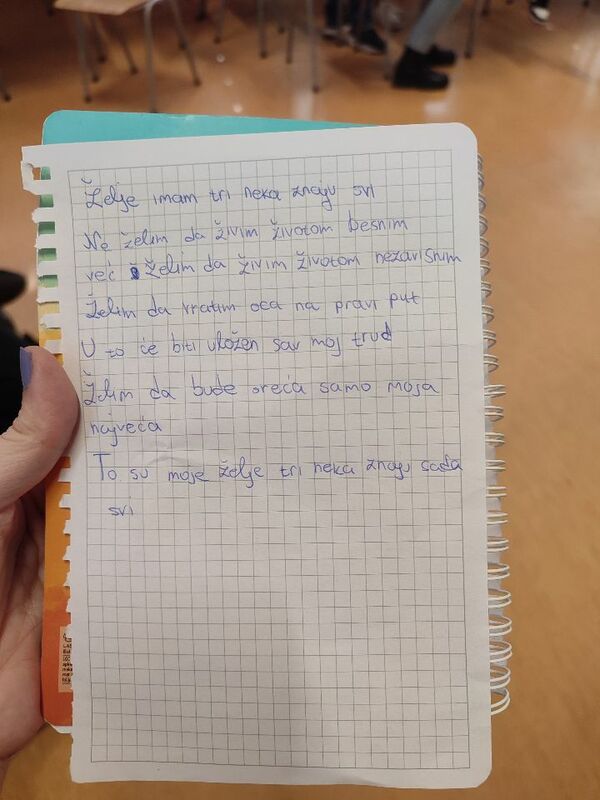 Želje imam tri neka znaju svi
Ne želim da živim životom besnim
već želim da živim životom nezavisnim
Želim da vratim oca na pravi put
U to će biti uložen sav moj trud
Želim da bude sreća samo moja
najveća
To su moje želje tri neka znaju sada
svi